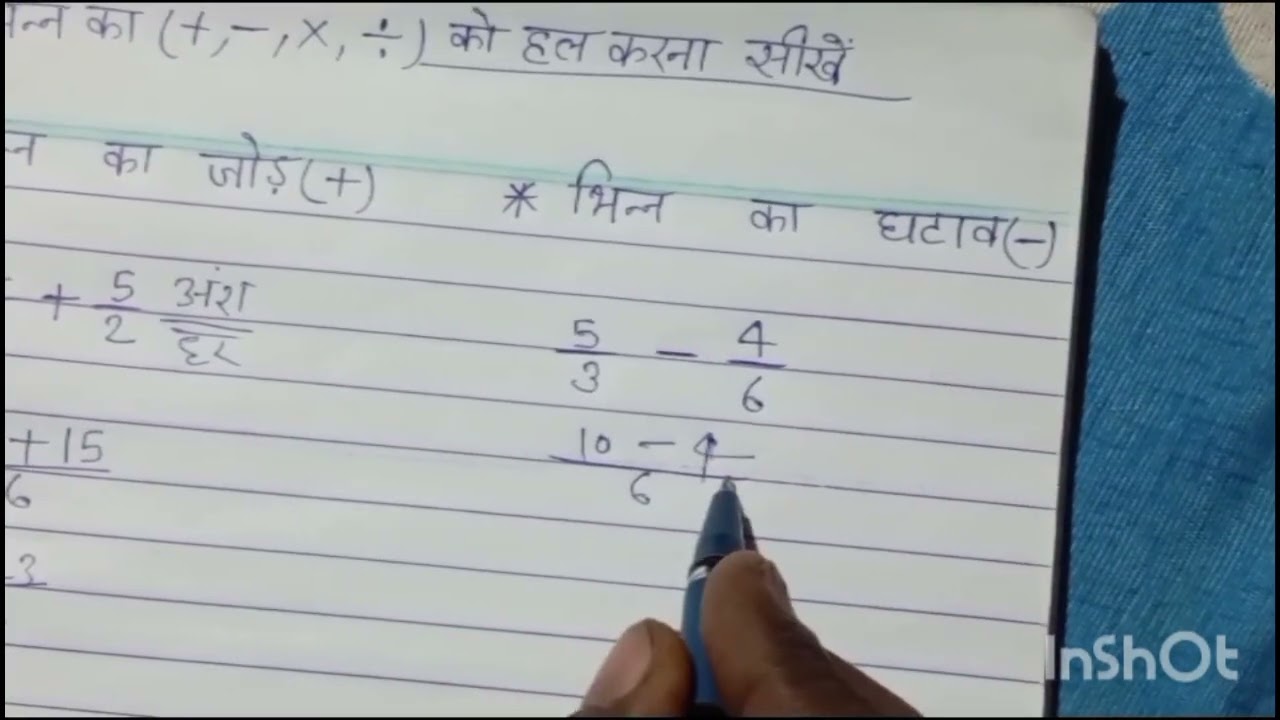 न्न का (+,-,×,÷) को हल करना सीखें
न का जोड़(+)
* भिन्न का घटाव(-)
+ 5/2 अंश/हर
5/3 - 4/6
+15/6
10 - 4/6
3
InShOt